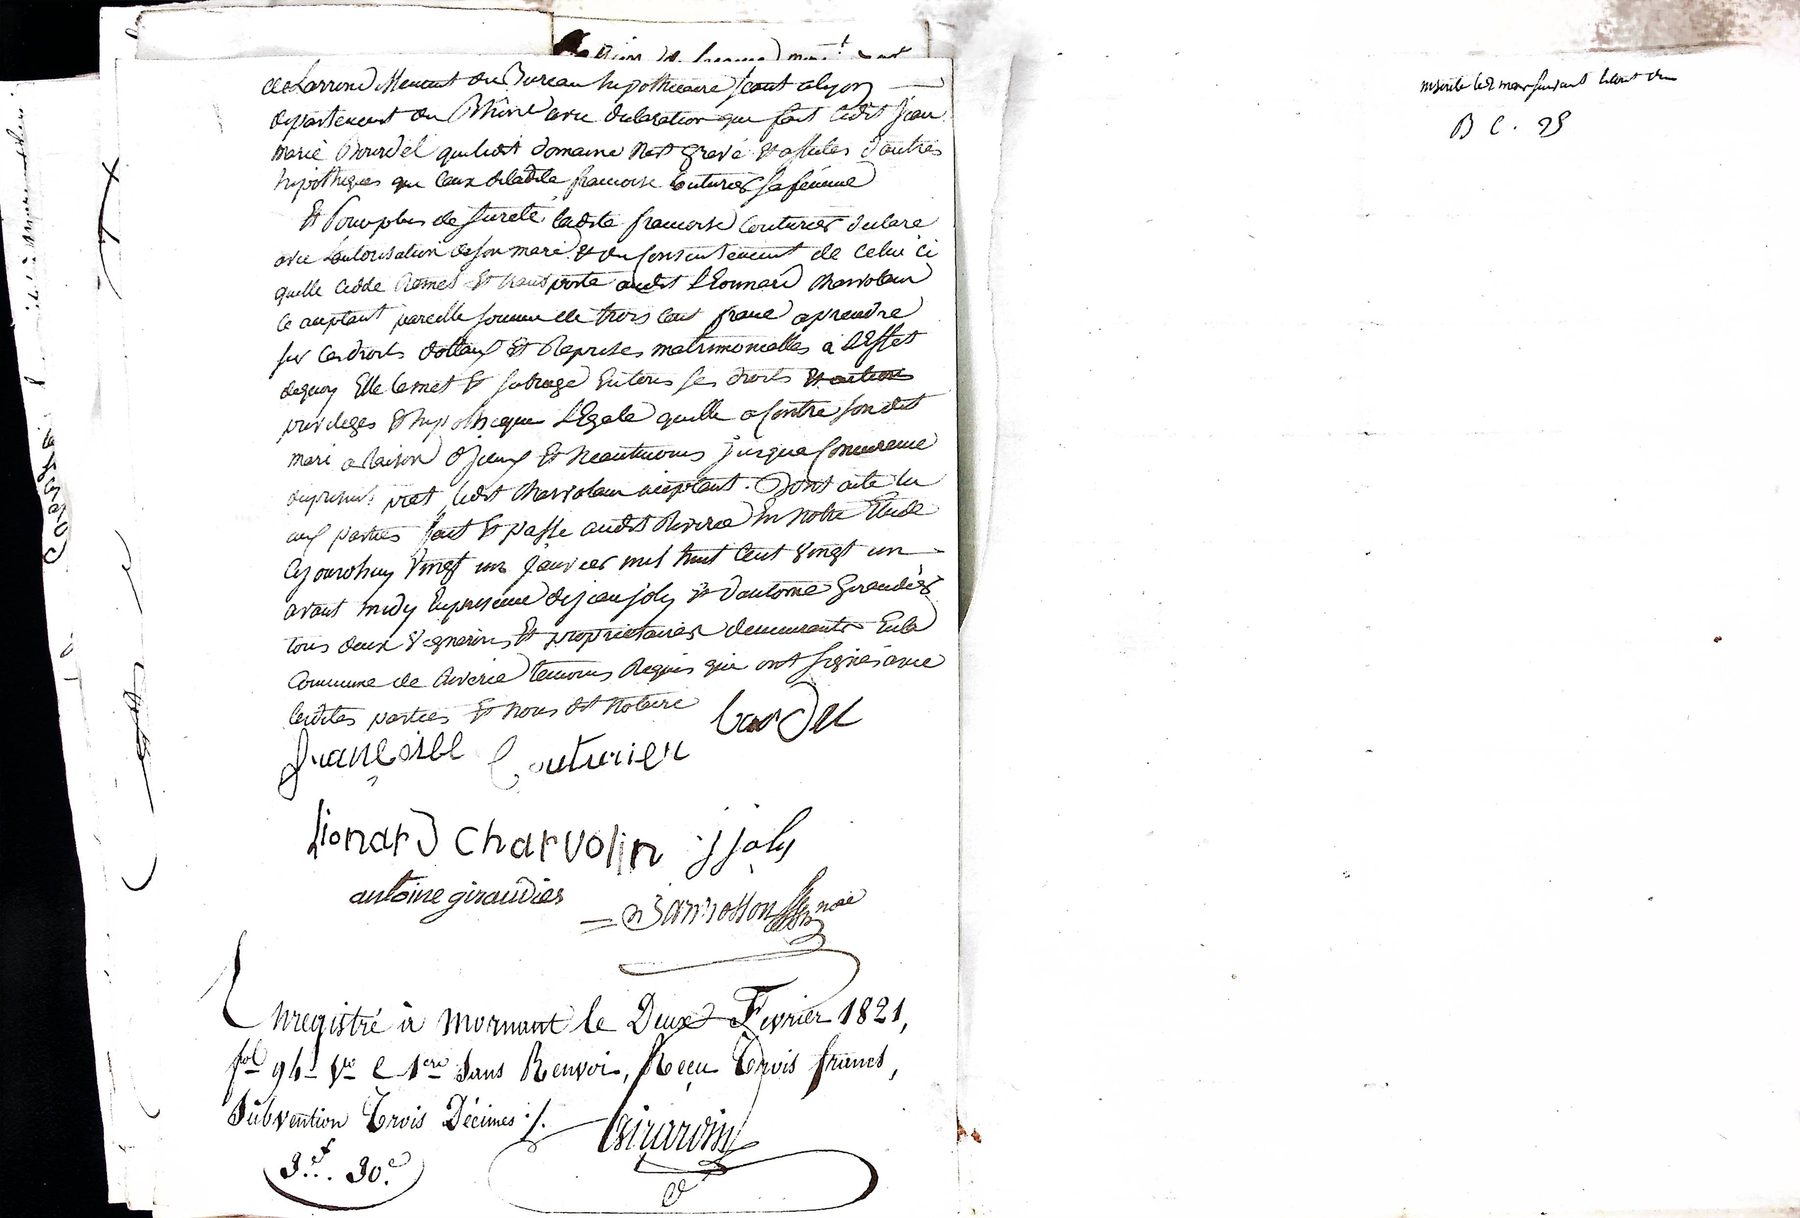 de Larrondissement du Bureau hipothecaire seant a lyon
departement du Rhône avec declaration que fait ledit jean
marie Bourdel que ledit domaine nest grevé et affectes d'autres
hipotheques que ceux de ladite francoise couturier sa femme
Et Pour plus de sureté ladite francoise couturier declare
avec Lautorisation de son mari et du Consentement de celui ci
quelle cedde Remet et transporte audit Léonnard charvolin
ce acceptant pareille somme de trois cent franc a prendre
sur ces droits dottaux et Reprises matrimonialles à l'effet
dequoy Elle lemet et subroge en tous ses droits et actions
privileges et hipotheque Légale quelle a Contre son dit
mari a Raison d'jceux Et neantmoins jusqua Concurence
du present pret ledit charvolin acceptant. Dont acte lu
aux parties fait et passé audit Riverie En notre Etude
Cejourdhuy Vingt un janvier mil huit Cent Vingt un
avant midy En presence de jean joly et d'antoine Giraudier
tous deux Vignerons Et proprietaires demeurants En la
Commune de Riverie temoins Requis qui ont signés avec
lesdites parties et nous dit notaire
francoise Couturier
Lionard charvolin jjoly
antoine giraudier
nore
Enregistré à Mornant le Deux Fevrier 1821,
fol 94 Vo C 1ere sans Renvoi, Reçu Trois francs,
Subvention Trois Décimes ./.
Girardin
3.f. 30.c
inscrite le 2 mars suivant
B C. 25